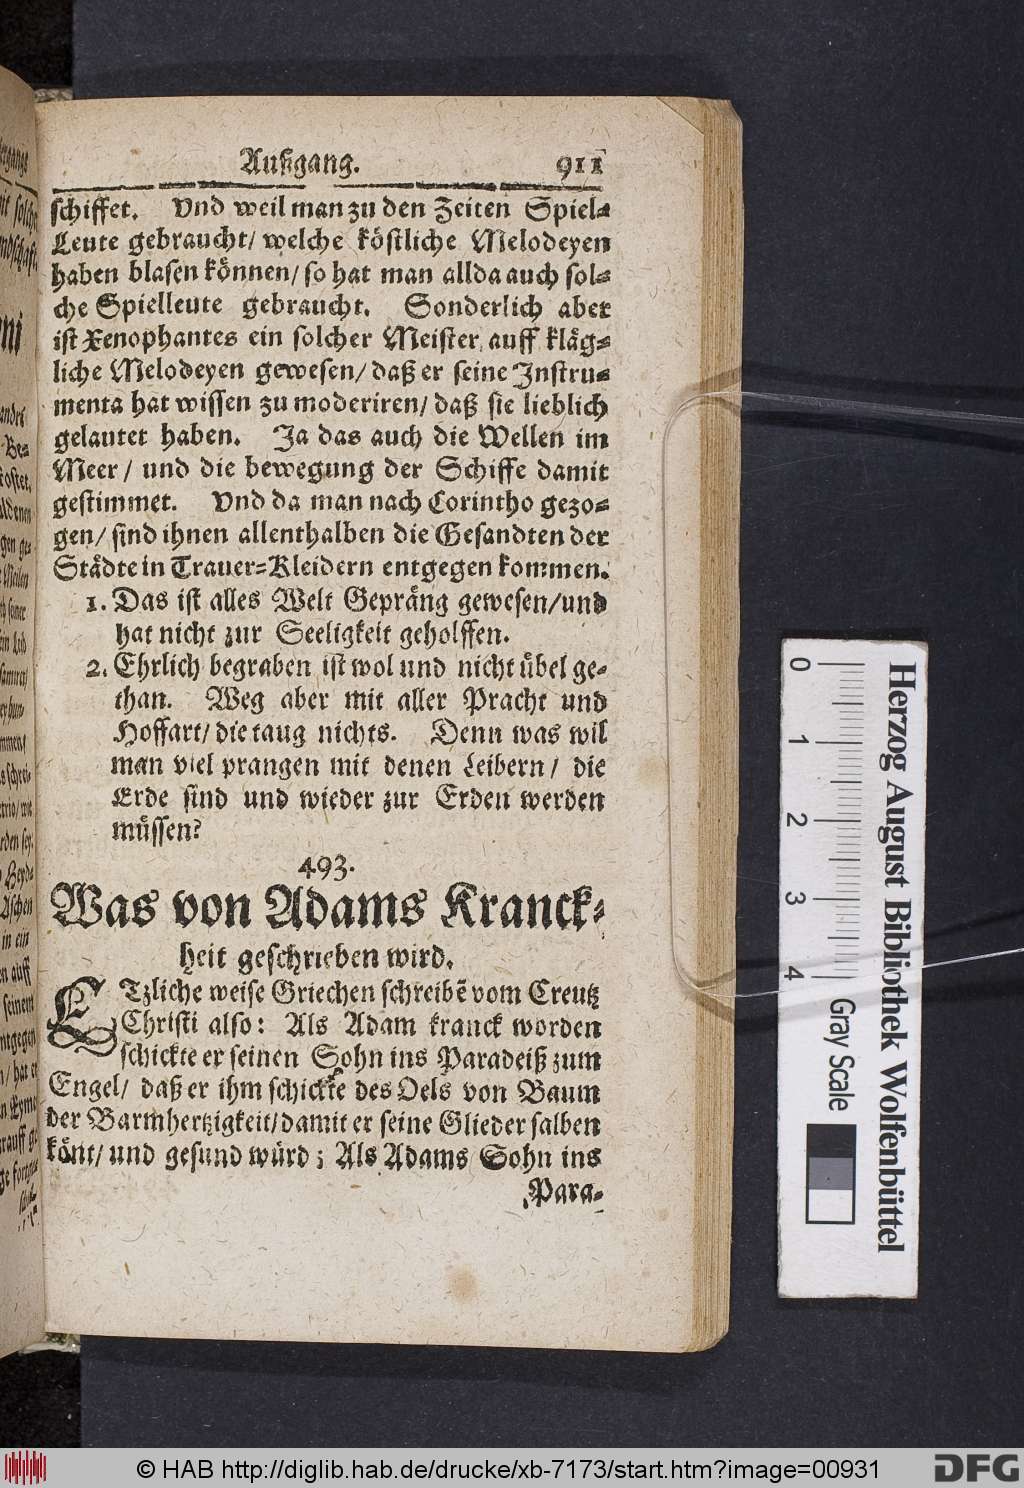 Außgang. 911
schiffet. Vnd weil man zu den Zeiten Spiel-
Leute gebraucht/ welche köstliche Melodeyen
haben blasen können/ so hat man allda auch sol-
che Spielleute gebraucht. Sonderlich aber
ist Xenophantes ein solcher Meister auff kläg-
liche Melodeyen gewesen/ daß er seine Instru-
menta hat wissen zu moderiren/ daß sie lieblich
gelautet haben. Ja das auch die Wellen im
Meer/ und die bewegung der Schiffe damit
gestimmet. Vnd da man nach Corintho gezo-
gen/ sind ihnen allenthalben die Gesandten der
Städte in Trauer-Kleidern entgegen kommen.
1. Das ist alles Welt Gepräng gewesen/und
hat nicht zur Seeligkeit geholffen.
2. Ehrlich begraben ist wol und nicht übel ge-
than. Weg aber mit aller Pracht und
Hoffart/ die taug nichts. Denn was wil
man viel prangen mit denen Leibern/ die
Erde sind und wieder zur Erden werden
müssen?
493.
Was von Adams Kranck-
heit geschrieben wird.
ETzliche weise Griechen schreibē vom Creutz
Christi also: Als Adam kranck worden
schickte er seinen Sohn ins Paradeiß zum
Engel/ daß er ihm schickte des Oels von Baum
der Barmhertzigkeit/damit er seine Glieder salben
könt/ und gesund würd; Als Adams Sohn ins
Para-
Herzog August Bibliothek Wolfenbüttel
0 1 2 3 4 Gray Scale
© HAB http://diglib.hab.de/drucke/xb-7173/start.htm?image=00931
DFG